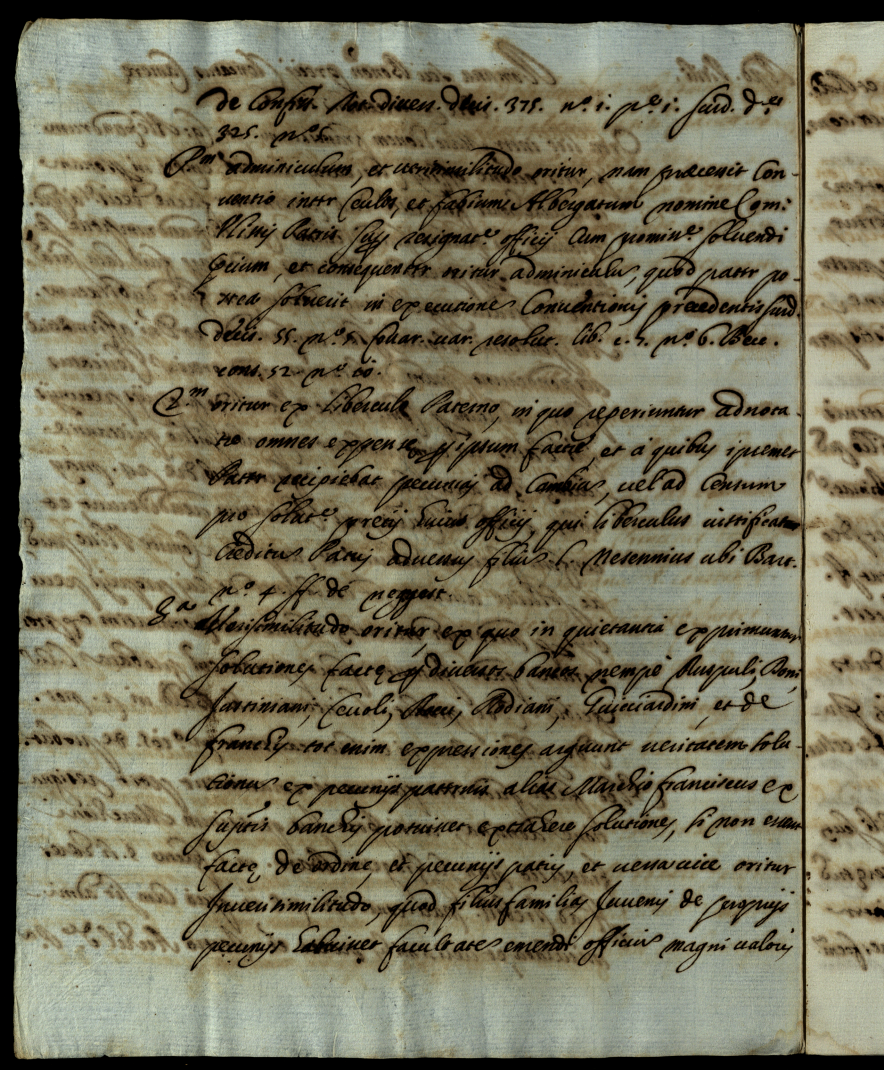 de Confes. Rot. diuers. decis. 375. n.º 1. p.e 1. Surd. d.ec
325. n.º 5
P.m adminiculum, et uerisimilitudo oritur, nam præcessit Con-
uentio inter Ceulos, et fabium Albergatum nomine Com:
Patris resignat.e officij cum nomin.e soluendi
precium, et consequenter oritur adminiculũ, quod pater po-
stea soluerit in executione Conuentionis præcedentis surd.
decis. 55. n.º 5. Couar. uar. resolut. lib. c. 7. n.º 6. Becc.
cons. 52 n.º 10.
2.m oritur ex libersculo Paterno, in quo reperiuntur adnota-
te omnes expense p ipsum facte, et à quibus ipsemet
Pater recipiebat pecunias ad Cambia, uel ad Censum
pro solut.e precij huius officij, qui liberculus iustificat
Creditũ Patris aduersus filiũ l. Nesennius ubi Bart.
n.º 4. ff de neg. gest.
3.a Verisimilitudo oritur, ex quo in quietantia exprimuntur
solutiones factę p diuersos bancos nempè Ruspuli, Boni,
Justiniani, Ceuoli, Ricci, Rodiani, Guicciardini, et de
franchis tot enim expressiones arguunt ueritatem solu-
tionis ex pecunijs paternis alias Marchio franciscus ex
sup.tis banchis potuisset extrahere solutiones, si non essent
factę de ordine, et pecunijs patris, et uersa uice oritur
Inuerisimilitudo, quod filius familias Juuenis de proprijs
pecunijs habuisset facultatẽ emendi officiũ magni ualoris